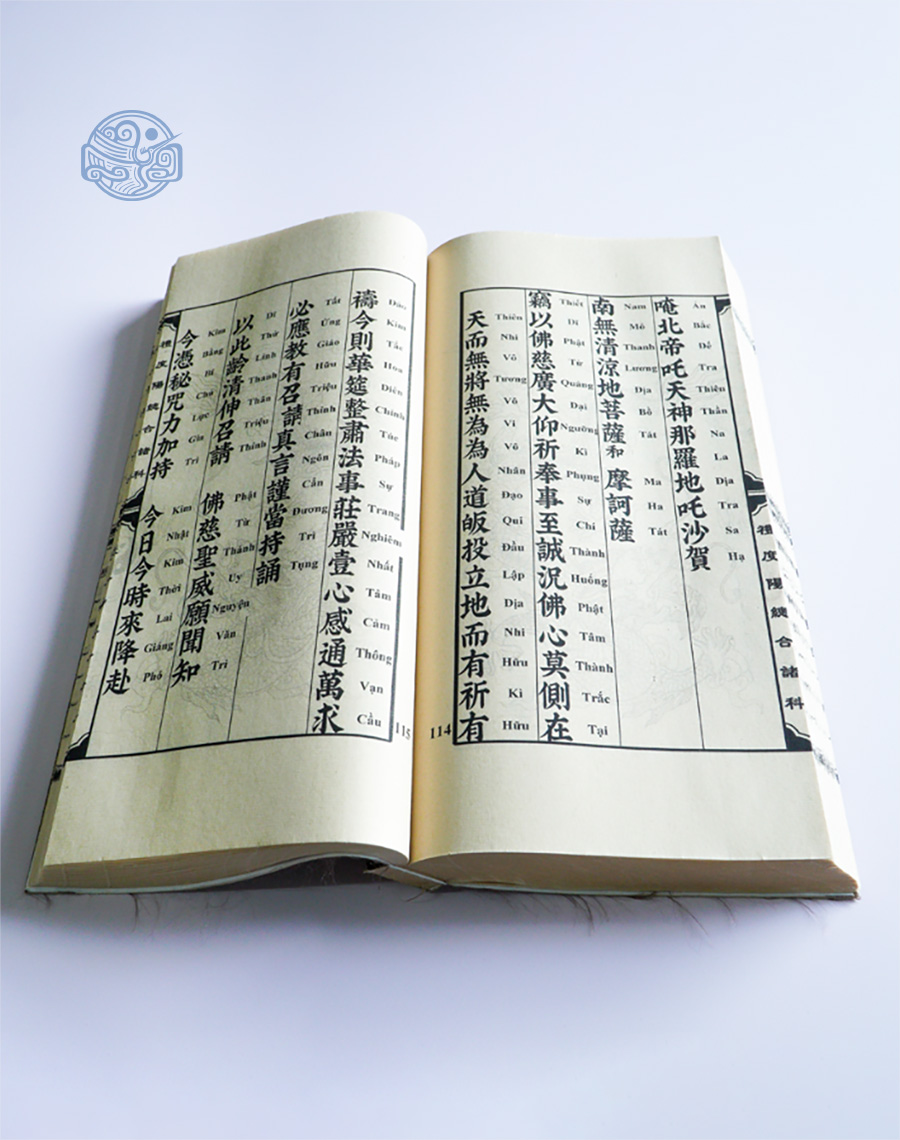 唵北帝吒天神那羅地吒沙賀
Án Bắc Đế Tra Thiên Thần Na La Địa Tra Sa Hạ
南無清凉地菩薩和 摩訶薩
Nam Mô Thanh Lương Địa Bồ Tát Ma Ha Tát
竊以佛慈廣大仰祈奉事至誠況佛心莫側在
Thiết Dĩ Phật Từ Quảng Đại Ngưỡng Kì Phụng Sự Chí Thành Huống Phật Tâm Thành Trắc Tại
天而無將無為為人道皈投立地而有祈有
Thiên Nhi Vô Tương Vô Vi Vô Nhân Đạo Qui Đầu Lập Địa Nhi Hữu Kì Hữu
114
禱今則華筵整肅法事莊嚴壹心感通萬求
Đảo Kim Tắc Hoa Diên Chỉnh Túc Pháp Sự Trang Nghiêm Nhất Tâm Cảm Thông Vạn Cầu
必應教有召請真言謹當持誦
Tất Ứng Giáo Hữu Triệu Thỉnh Chân Ngôn Cẩn Đương Trì Tụng
以此齡清伸召請 佛慈聖威願聞知
Dĩ Thử Linh Thanh Thân Triệu Thỉnh Phật Từ Thánh Uy Nguyện Văn Tri
今憑秘咒力加持 今日今時來降赴
Kim Bằng Bí Chú Lực Gia Trì Kim Nhật Kim Thời Lai Giáng Phó
115
度陽 合諸科
度陽 合諸科